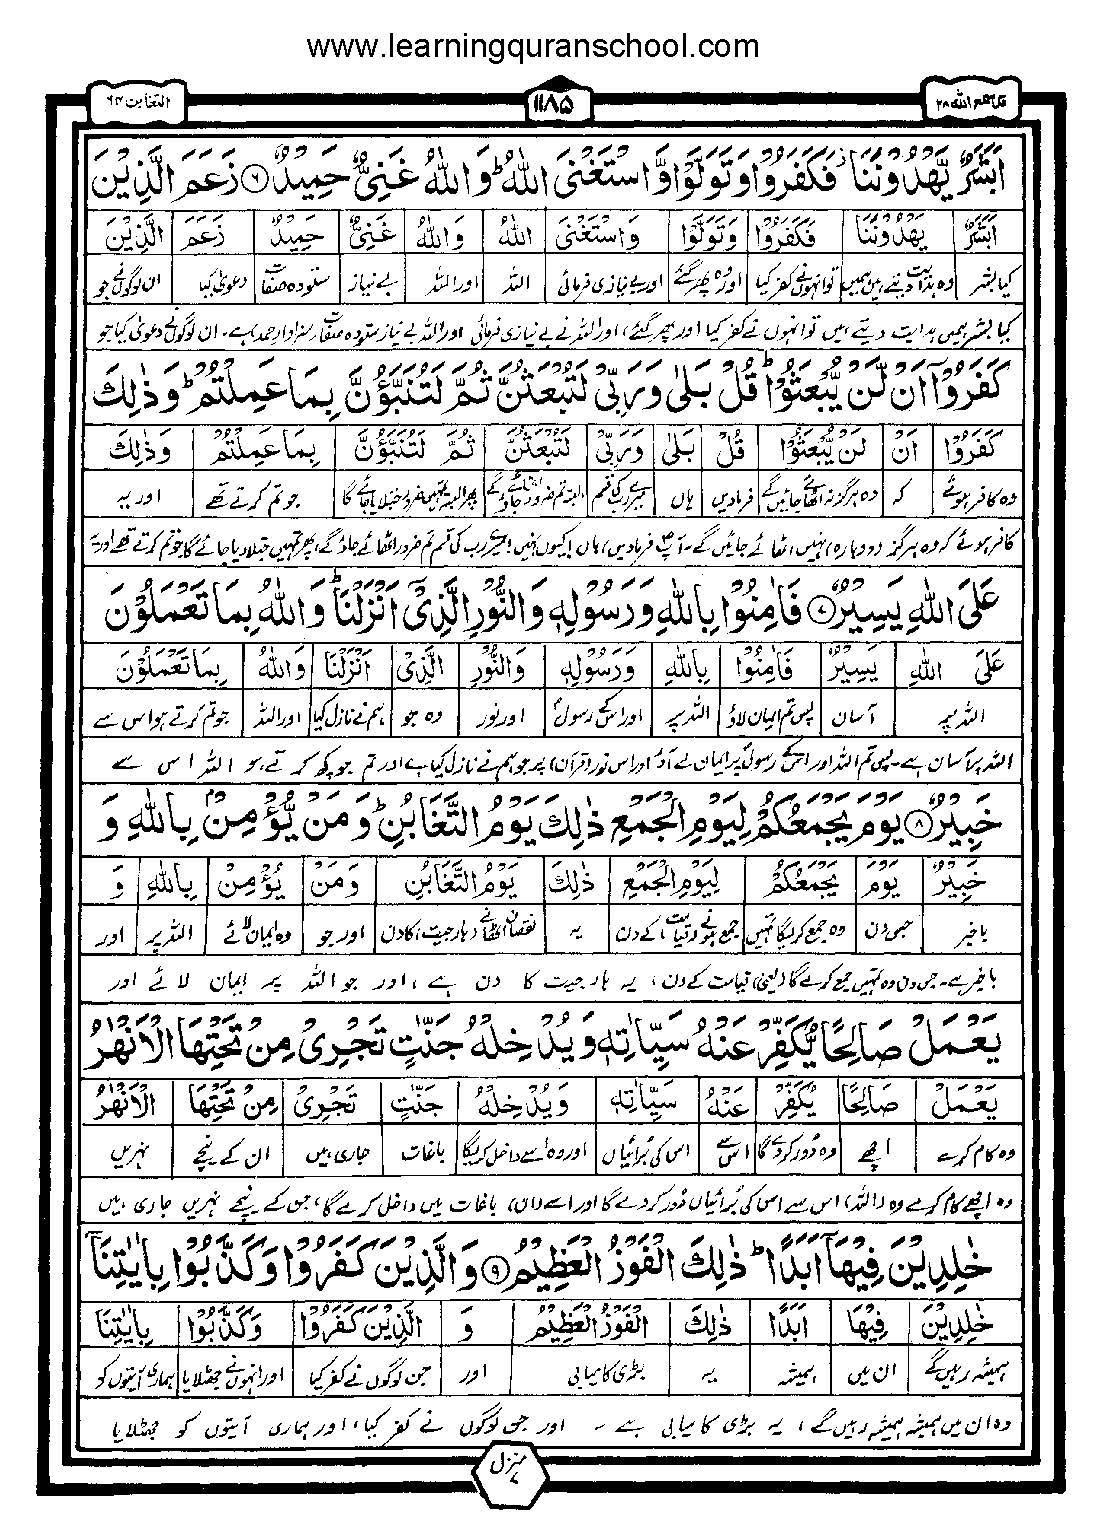 www.learningquranschool.com
قد سمع الله ۲۸
۱۱۸۵
التغابن ۶۴
اَبَشَرٌ یَّهْدُوْنَنَا ز فَكَفَرُوْا وَتَوَلَّوْا وَّ اسْتَغْنَى اللّٰهُ ؕ وَ اللّٰهُ غَنِیٌّ حَمِیْدٌ ۶ زَعَمَ الَّذِیْنَ
اَبَشَرٌ یَهْدُوْنَنَا فَكَفَرُوْا وَتَوَلَّوْا وَاسْتَغْنَى اللّٰهُ وَاللّٰهُ غَنِیٌّ حَمِیْدٌ زَعَمَ الَّذِیْنَ
کیا بشر وہ ہدایت دیتے ہیں ہمیں تو انہوں نے کفر کیا اور وہ پھر گئے اور بے نیازی فرمائی اللہ اور اللہ بے نیاز ستودہ صفات دعویٰ کیا ان لوگوں نے جو
کیا بشر ہمیں ہدایت دیتے ہیں تو انہوں نے کفر کیا اور پھر گئے، اور اللہ نے بے نیازی فرمائی اور اللہ بے نیاز ستودہ صفات سزاوارِ حمد ہے۔ ان لوگوں نے دعویٰ کیا جو
كَفَرُوْۤا اَنْ لَّنْ یُّبْعَثُوْا ؕ قُلْ بَلٰى وَ رَبِّیْ لَتُبْعَثُنَّ ثُمَّ لَتُنَبَّؤُنَّ بِمَا عَمِلْتُمْ ؕ وَ ذٰلِكَ
كَفَرُوْا اَنْ لَنْ یُبْعَثُوْا قُلْ بَلٰى وَرَبِّیْ لَتُبْعَثُنَّ ثُمَّ لَتُنَبَّؤُنَّ بِمَا عَمِلْتُمْ وَذٰلِكَ
وہ کافر ہوئے کہ وہ ہرگز نہ اٹھائے جائیں گے فرمادیں ہاں میرے رب کی قسم البتہ تم ضرور اٹھائے جاؤ گے پھر البتہ تمہیں ضرور جتلایا جائے گا جو تم کرتے تھے اور یہ
کافر ہوئے کہ وہ ہرگز (دوبارہ) نہیں اٹھائے جائیں گے۔ آپ فرمادیں، ہاں! کیوں نہیں! میرے رب کی قسم تم ضرور اٹھائے جاؤ گے، پھر تمہیں جتلا دیا جائے گا جو تم کرتے تھے اور یہ
عَلَى اللّٰهِ یَسِیْرٌ ۷ فَاٰمِنُوْا بِاللّٰهِ وَ رَسُوْلِهٖ وَ النُّوْرِ الَّذِیْۤ اَنْزَلْنَا ؕ وَ اللّٰهُ بِمَا تَعْمَلُوْنَ
عَلَى اللّٰهِ یَسِیْرٌ فَاٰمِنُوْا بِاللّٰهِ وَرَسُوْلِهٖ وَالنُّوْرِ الَّذِیْ اَنْزَلْنَا وَاللّٰهُ بِمَا تَعْمَلُوْنَ
اللہ پر آسان پس تم ایمان لاؤ اللہ پر اور اس کے رسولؐ اور نور وہ جو ہم نے نازل کیا اور اللہ جو تم کرتے ہو اس سے
اللہ پر آسان ہے۔ پس تم اللہ اور اس کے رسولؐ پر ایمان لے آؤ اور اس نور (قرآن) پر جو ہم نے نازل کیا ہے اور تم جو کچھ کرتے ہو اللہ اس سے
خَبِیْرٌ ۸ یَوْمَ یَجْمَعُكُمْ لِیَوْمِ الْجَمْعِ ذٰلِكَ یَوْمُ التَّغَابُنِ ؕ وَ مَنْ یُّؤْمِنْۢ بِاللّٰهِ وَ
خَبِیْرٌ یَوْمَ یَجْمَعُكُمْ لِیَوْمِ الْجَمْعِ ذٰلِكَ یَوْمُ التَّغَابُنِ وَمَنْ یُؤْمِنْ بِاللّٰهِ وَ
باخبر جس دن وہ جمع کریگا تمہیں جمع ہونے (قیامت) کے دن یہ نقصان اٹھانے (ہار جیت) کا دن اور جو وہ ایمان لائے اللہ پر اور
باخبر ہے۔ جس دن وہ تمہیں جمع کرے گا (یعنی) قیامت کے دن، یہ ہار جیت کا دن ہے، اور جو اللہ پر ایمان لائے اور
یَعْمَلْ صَالِحًا یُّكَفِّرْ عَنْهُ سَیِّاٰتِهٖ وَ یُدْخِلْهُ جَنّٰتٍ تَجْرِیْ مِنْ تَحْتِهَا الْاَنْهٰرُ
یَعْمَلْ صَالِحًا یُكَفِّرْ عَنْهُ سَیِّاٰتِهٖ وَیُدْخِلْهُ جَنّٰتٍ تَجْرِیْ مِنْ تَحْتِهَا الْاَنْهٰرُ
وہ کام کرے اچھے وہ دور کر دے گا اس سے اس کی برائیاں اور وہ اسے داخل کریگا باغات جاری ہیں ان کے نیچے نہریں
وہ اچھے کام کرے وہ (اللہ) اس سے اس کی برائیاں دور کر دے گا اور اسے (ان) باغات میں داخل کرے گا، جن کے نیچے نہریں جاری ہیں
خٰلِدِیْنَ فِیْهَاۤ اَبَدًا ؕ ذٰلِكَ الْفَوْزُ الْعَظِیْمُ ۹ وَ الَّذِیْنَ كَفَرُوْا وَ كَذَّبُوْا بِاٰیٰتِنَاۤ
خٰلِدِیْنَ فِیْهَا اَبَدًا ذٰلِكَ الْفَوْزُ الْعَظِیْمُ وَ الَّذِیْنَ كَفَرُوْا وَكَذَّبُوْا بِاٰیٰتِنَا
ہمیشہ رہیں گے ان میں ہمیشہ یہ بڑی کامیابی اور جن لوگوں نے کفر کیا اور انہوں نے جھٹلایا ہماری آیتوں کو
وہ ان میں ہمیشہ ہمیشہ رہیں گے، یہ بڑی کامیابی ہے۔ اور جن لوگوں نے کفر کیا، اور ہماری آیتوں کو جھٹلایا
منزل ۷